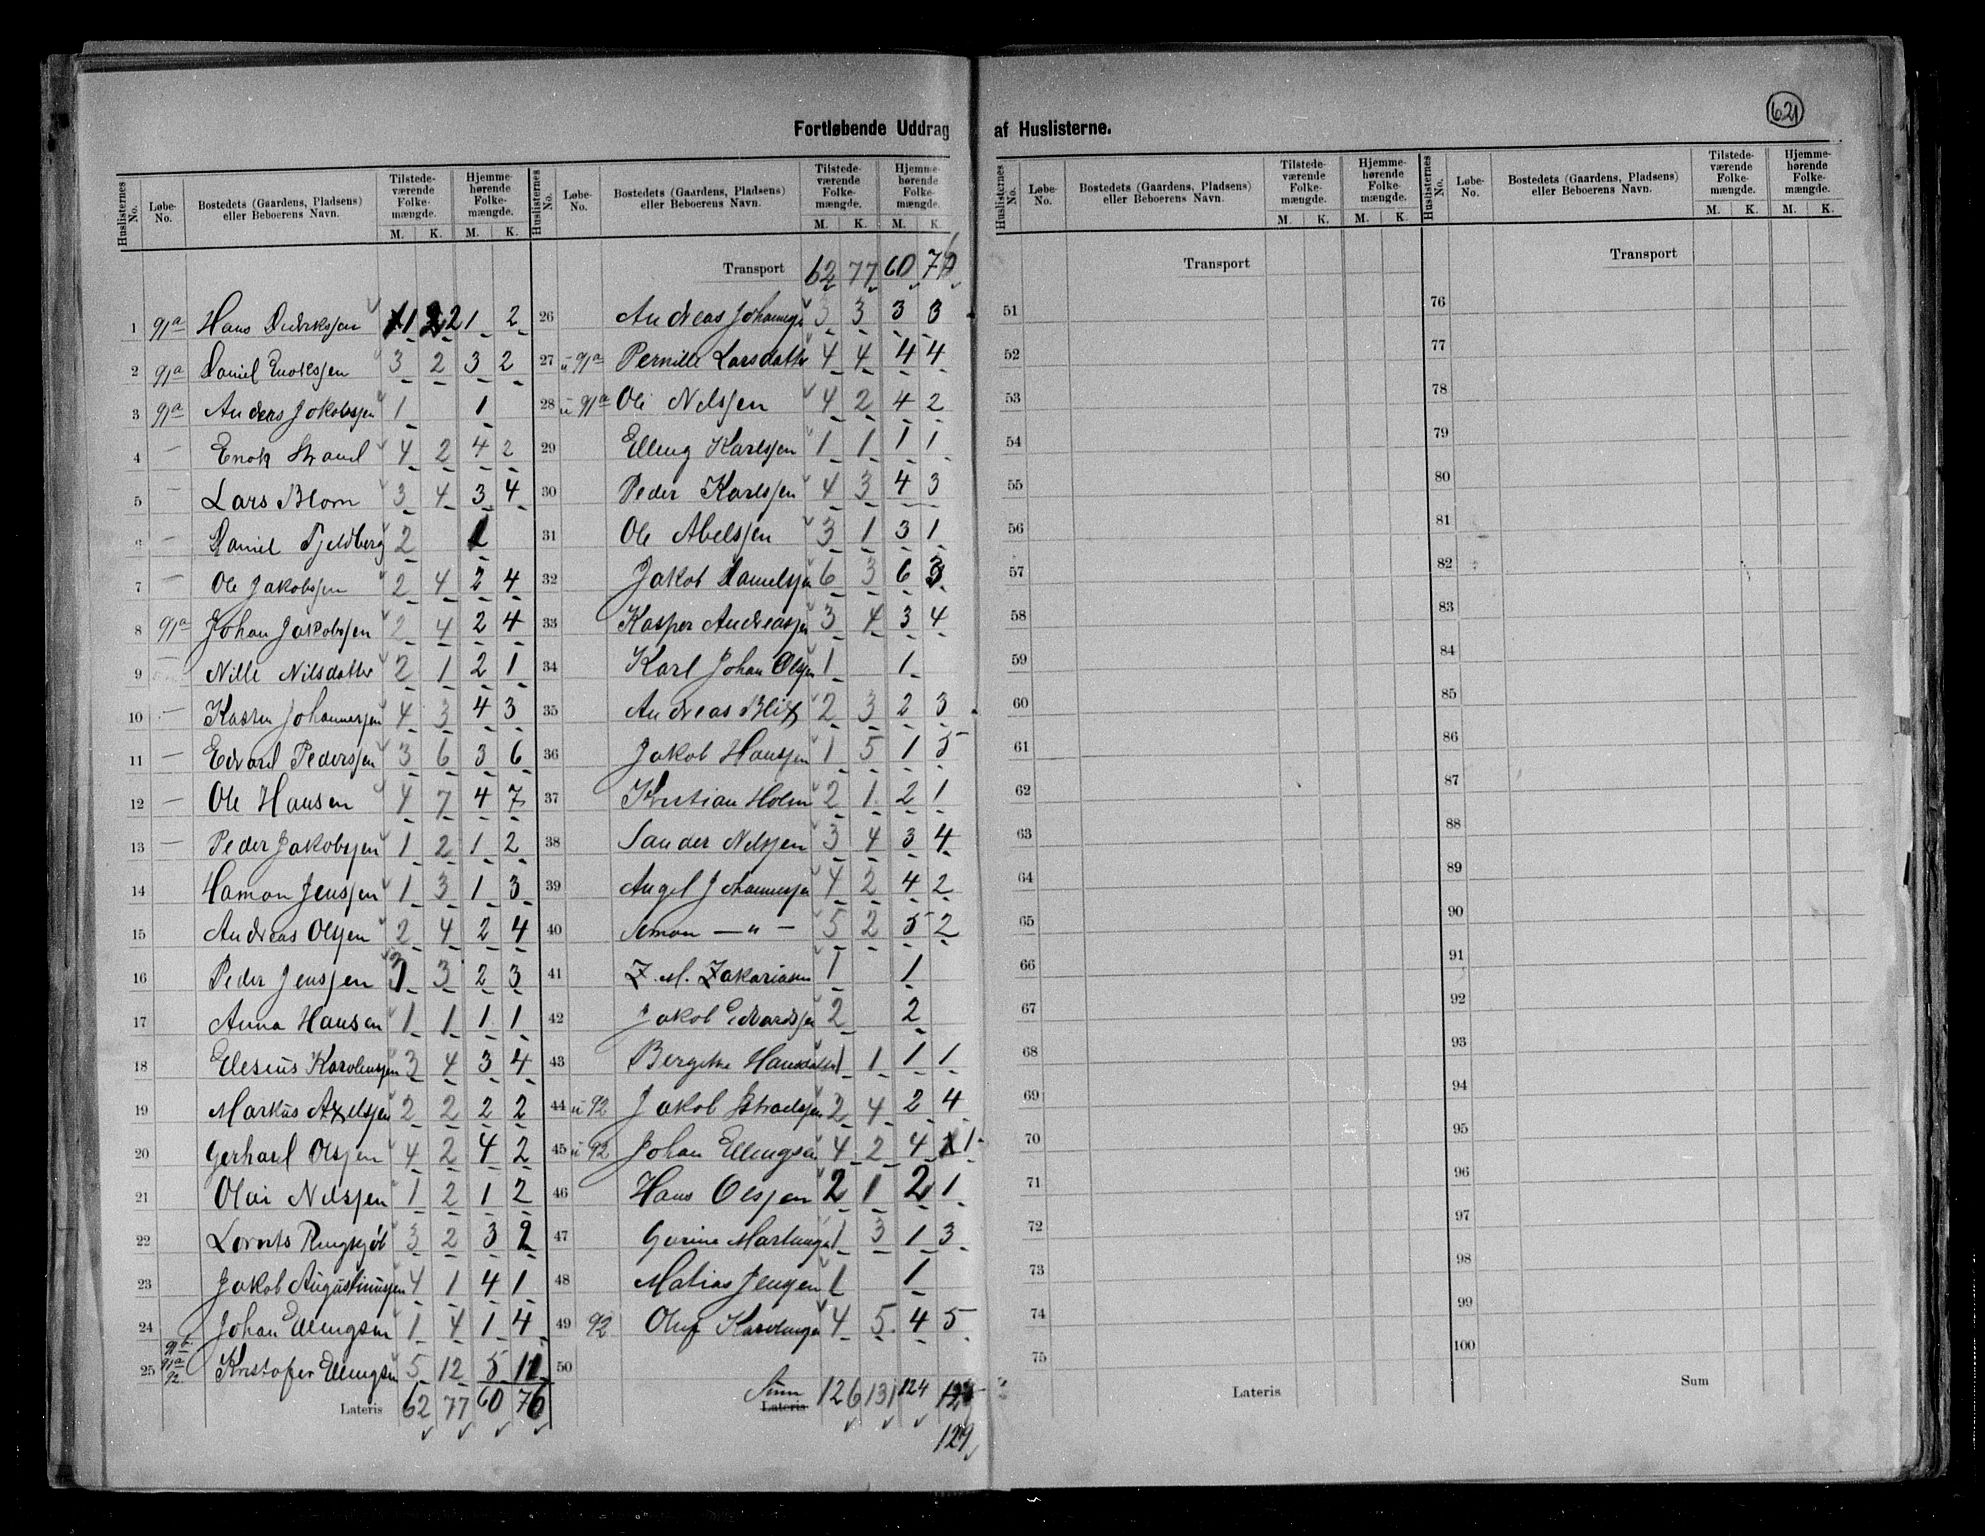 621
Fortløbende Uddrag af Huslisterne.
Huslisternes No. | Løbe-No. | Bostedets (Gaardens, Pladsens) eller Beboerens Navn. | Tilstedeværende Folkemængde. M. K. | Hjemmehørende Folkemængde. M. K.
1 91a Hans Didriksen 1 2 1 2
2 91a Daniel Enoksen 3 2 3 2
3 91a Anders Jakobsen 1 1
4 — Enok Strand 4 2 4 2
5 — Lars Blom 3 4 3 4
6 — Daniel Fjeldberg 2 1
7 — Ole Jakobsen 2 4 2 4
8 91a Johan Jakobsen 2 4 2 4
9 — Nille Nilsdatter 2 1 2 1
10 — Kasten Johannesen 4 3 4 3
11 — Edvard Pedersen 3 6 3 6
12 — Ole Hansen 4 7 4 7
13 — Peder Jakobsen 1 2 1 2
14 Hamon Jensen 1 3 1 3
15 Andreas Olsen 2 4 2 4
16 Peder Jensen 3 2 3
17 Anna Hansen 1 1 1 1
18 Elesius Karolinsen 3 4 3 4
19 Markus Axelsen 2 2 2 2
20 Gerhard Olsen 4 2 4 2
21 Olai Nilsen 1 2 1 2
22 Lornts Ringskjøb 3 2 3 2
23 Jakob Augustinusen 4 1 4 1
24 Johan Ellingsen 1 4 1 4
25 91a 92 Kristofer Ellingsen 5 12 5 11
Lateris 62 77 60 76
Transport 62 77 60 76
26 Andreas Johannesen 3 3 3 3
27 91a Pernille Larsdatter 4 4 4 4
28 91a Ole Nilsen 4 2 4 2
29 Elling Karlsen 1 1 1 1
30 Peder Karlsen 4 3 4 3
31 Ole Abelsen 3 1 3 1
32 Jakob Danielsen 6 3 6 3
33 Kasper Andreasen 3 4 3 4
34 Karl Johan Olsen 1 1
35 Andreas Blix 2 3 2 3
36 Jakob Hansen 1 5 1 5
37 Kristian Holm 2 1 2 1
38 Sander Nilsen 3 4 3 4
39 Angel Johannesen 4 2 4 2
40 Simon — " — 5 2 5 2
41 Z. M. Zakariasen 1 1
42 Jakob Edvardsen 2 2
43 Bergitte Hansdatter 1 1 1 1
44 92 Jakob Istraelsen 2 4 2 4
45 92 Johan Ellingsen 4 2 4 1
46 Hans Olsen 2 1 2 1
47 Gurine Martinusen 1 3 1 3
48 Matias Jensen 1 1
49 92 Oluf Karolinusen 4 5 4 5
50
Sum Lateris 126 131 124 125
129
Huslisternes No. | Løbe-No. | Bostedets (Gaardens, Pladsens) eller Beboerens Navn. | Tilstedeværende Folkemængde. M. K. | Hjemmehørende Folkemængde. M. K.
Transport
51
52
53
54
55
56
57
58
59
60
61
62
63
64
65
66
67
68
69
70
71
72
73
74
75
Lateris
Huslisternes No. | Løbe-No. | Bostedets (Gaardens, Pladsens) eller Beboerens Navn. | Tilstedeværende Folkemængde. M. K. | Hjemmehørende Folkemængde. M. K.
Transport
76
77
78
79
80
81
82
83
84
85
86
87
88
89
90
91
92
93
94
95
96
97
98
99
100
Sum